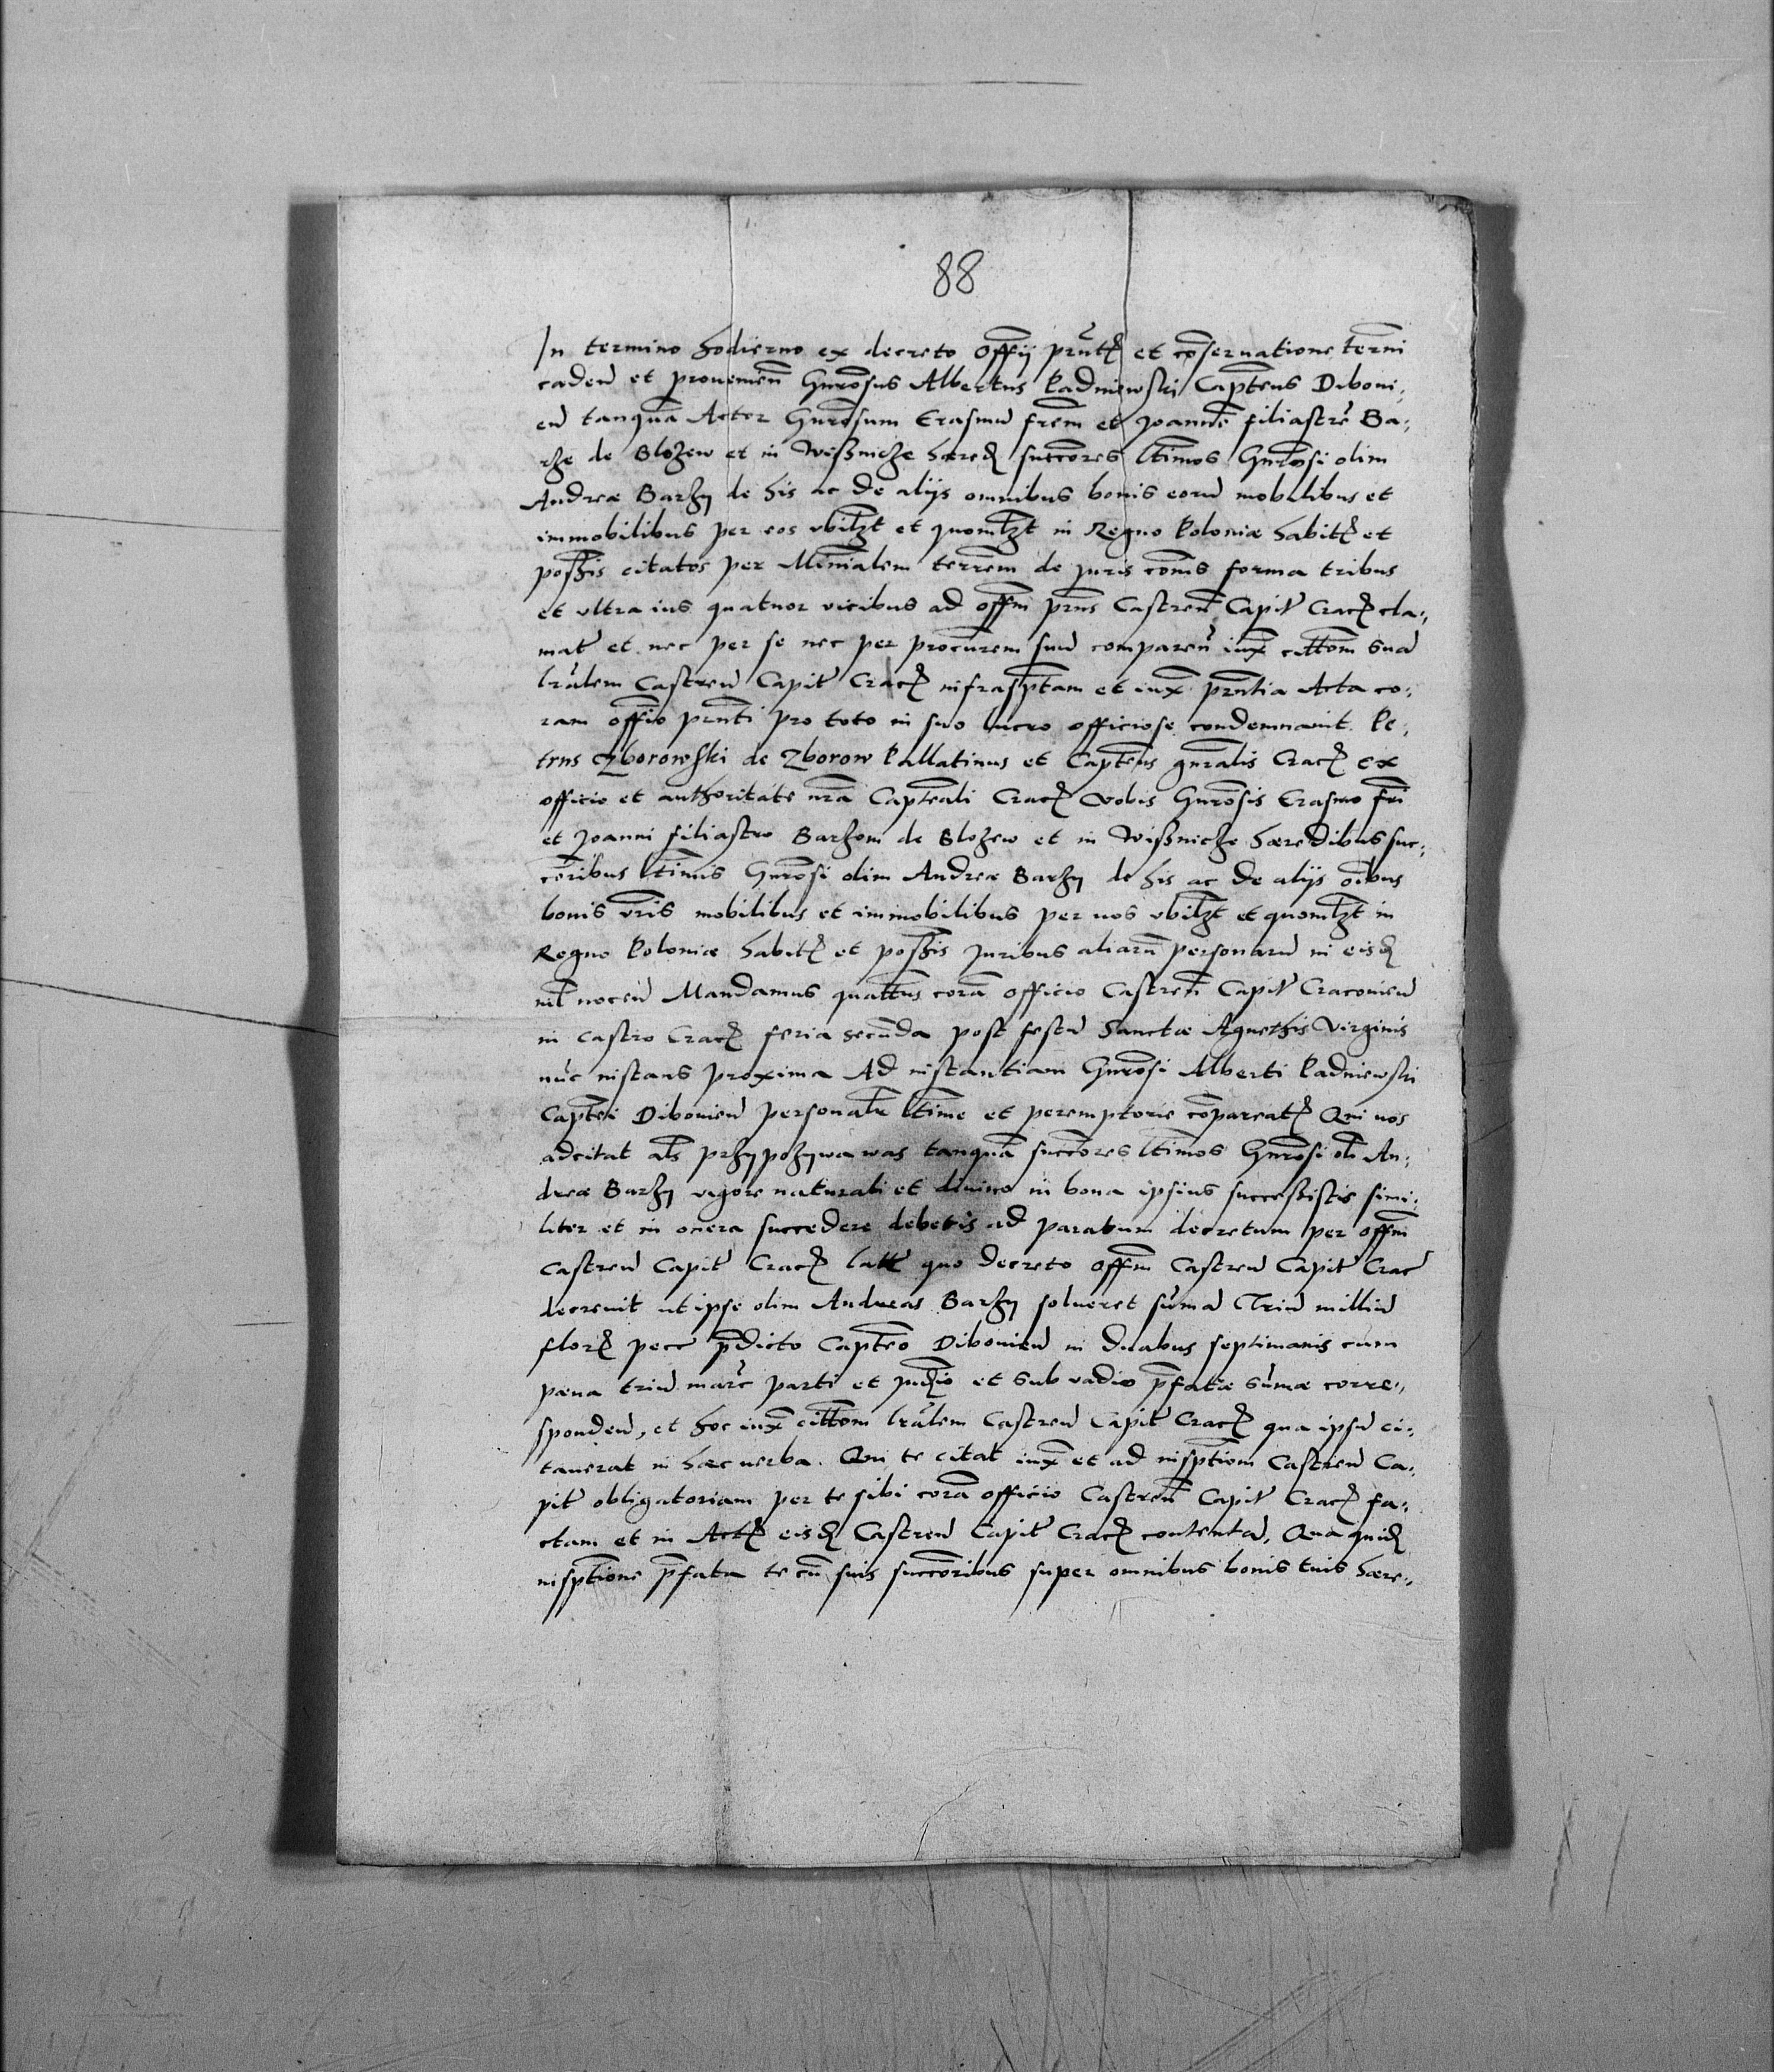 88
In termino hodierno ex decreto Offij prntl et conseruatione termi
caden et prouenien Gnrosus Albertus Padniewski Captens Diboni,,
en tanqua Actor Gnrosum Erasmu frem et Joanne filiastru Ba,,
rze de Blozew et in Wißnicze hæred succores ltimos Gnrosi olim
Andreæ Barzy de his ac de alijs omnibus bonis eoru mobilibus et
immobilibus per eos vbilzt et quomlzt in Regno Poloniæ habit et
possis citatos per Minialem terrem de Juris comis forma tribus
et vltra ius quatuor vicibus ad offm prns Castren Capit Crac cla,,
mat et nec per se nec per procurem suu comparen iux cittom sua
lralem Castren Capit Crac infrasptam et iux prntia Acta co,,
ram offio prnti pro toto in suo lucro officiose condemnauit. Pe,,
trus Zborowski de Zborow Pallatinus et Captens gnralis Crac ex
officio et authoritate nra Capteali Crac Vobis Gnrosis Erasmo fri
et Joanni filiastro Barzom de Blozew et in Wißnicze hæredibus suc,,
coribus ltimis Gnrosi olim Andreæ Barzy de his ac de alijs oibus
bonis vris mobilibus et immobilibus per uos vbilzt et quomlzt in
Regno Poloniæ habit et possis Juribus aliaru personaru in eisd
nil nocen Mandamus quattus cora officio Castren Capit Cracouien
in Castro Crac feria secunda post festu Sanctæ Agnethis Virginis
nuc instans proxima Ad instantiam Gnrosi Alberti Padniewski
Captei Dibonien personalr ltime et peremptorie compareat Qui uos
adcitat als przypozywa was tanqua succores ltimos Gnrosi oli An,,
dreæ Barzy vigore naturali et diuino in bona ipsius successistis simi,,
liter et in onera succedere debetis ad paratum decretum per offm
Castren Capit Crac latu quo decreto offm Castren Capit Crac
decreuit ut ipse olim Andreas Barzy solueret suma Triu milliu
flor pecc pdicto Capteo Dibonien in duabus septimanis cum
pæna triu marc parti et Judio et sub vadio pfatæ sumæ corre,,
sponden, et hoc iux cittom lralem Castren Capit Crac qua ipsu ci,,
tauerat in hæc uerba. Qui te citat iux et ad insptiom Castren Ca,,
pit obligatoriam per te sibi cora officio Castren Capit Crac fa,,
ctam et in Act eisd Castren Capit Crac contenta, Qua quid
insptione pfata te cu suis succoribus super omnibus bonis tuis hære,,